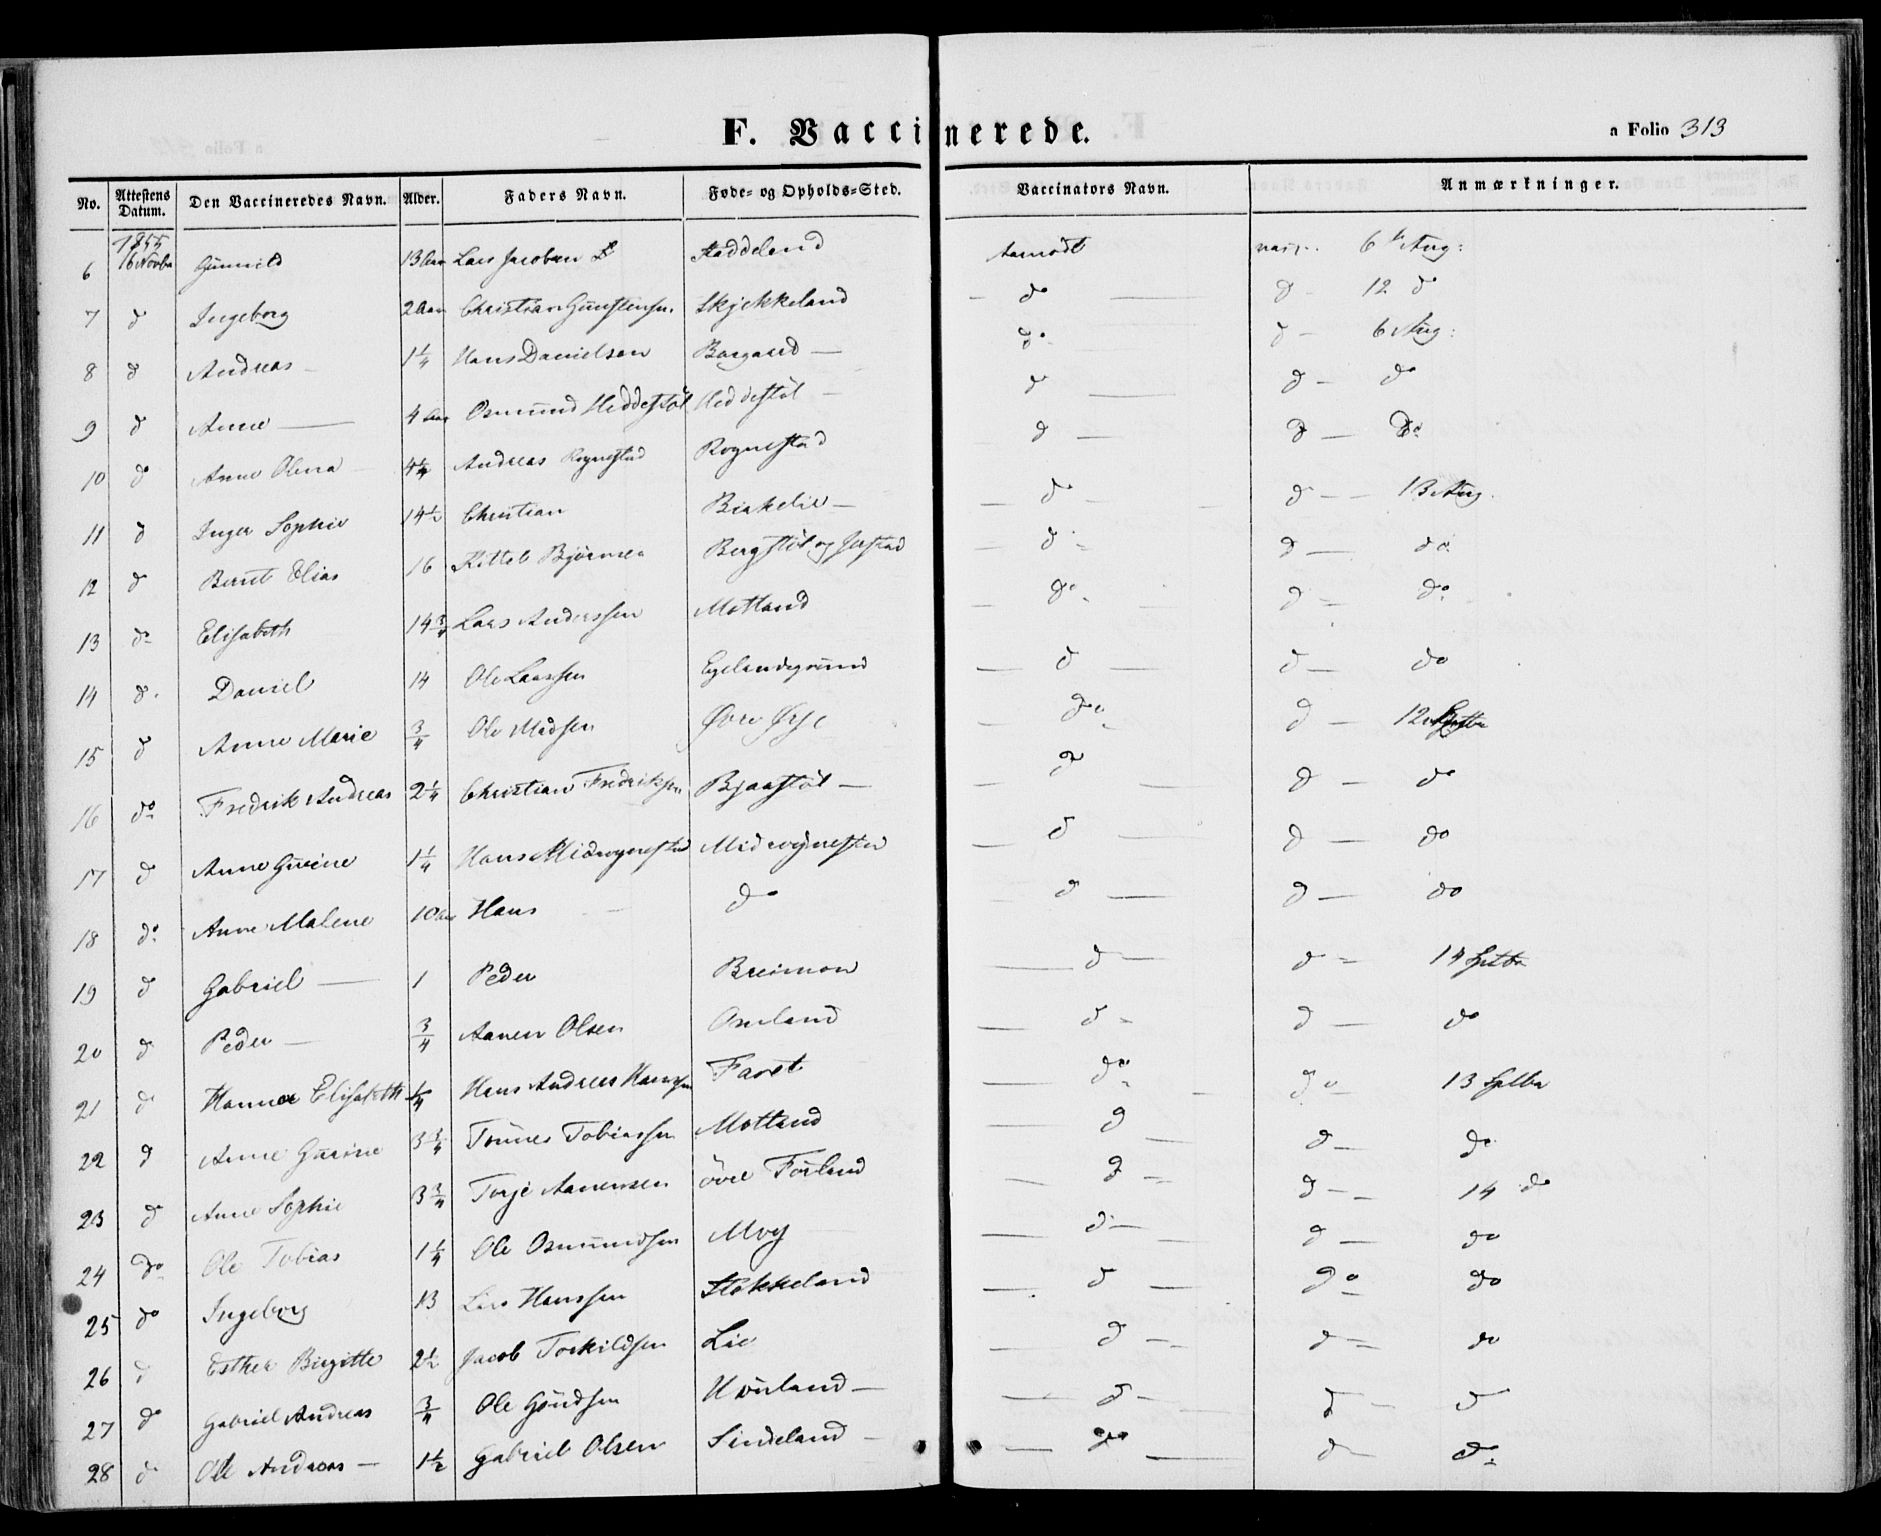 F. Vaccinerede.
a Folio 313
No. Attestens Datum. Den Vaccineredes Navn. Alder. Faders Navn. Føde- og Opholds-Sted. Vaccinators Navn. Anmærkninger.
1855
6 16 Novbr Gunnild 13 Aar Lars Jacobsen Staddeland Aamodt 6 Aug:
7 d Ingeborg 2 Aar Christian Gunstensen Skjekkeland do d - 12 do
8 d Andreas 1 1/4 Hans Danielsen Baagaard - do d - 6 Aug:
9 d Anne 4 Aar Osmund Heddestöl Heddestöl - d d - do
10 do Anne Olena 4 1/4 Andreas Rognestad Rognestad d - d - Do
11 d Inger Sophie 14 1/2 Christian Birkelie - do d - 13 Aug.
12 d Bernt Elias 16 Kittel Bjørnsen Bergstöl og Jerstad d d - do
13 do Elisabeth 14 3/4 Lars Anderssen Motland do d - do
14 d. Daniel 14 Ole Larssen Egelandsgrund d - d - do
15 d Anne Marie 3/4 Ole Madsen Øvre Øye do d - 12 Septbr
16 do Fredrik Andreas 2 1/4 Christian Fredriksen Bjaastöl - d d - do
17 d Anne Gurine 1 1/4 Hans Midrognestad Midrognestad d - d - do
18 do Anne Malene 10 Aar Hans do d - d - do
19 d Gabriel - 1 Peder Breimon d - d - 14 Septbr
20 d Peder - 3/4 Aanen Olsen Omland d - d - do
21 d Hanna Elisabeth 1/4 Hans Andreas Hanssen Faret do do 13 Septbr
22 d Anne Gurine 3 3/4 Tønnes Tobiassen Motland d d - do
23 d Anne Sophie 3 3/4 Torje Aanensen övre Førland d - d - 14 do
24 do Ole Tobias 1 1/4 Ole Osmundsen Moy d - d - do
25 do Ingeborg 13 Lars Hanssen Stokkeland d - do do
26 d Esther Birgitte 2 1/2 Jacob Torkildsen Lie d - d - do
27 do Gabriel Andreas 3/4 Ole Gundsen d - d - d
28 d Ole Andreas - 1 1/2 Gabriel Olsen Sindeland - do d - do